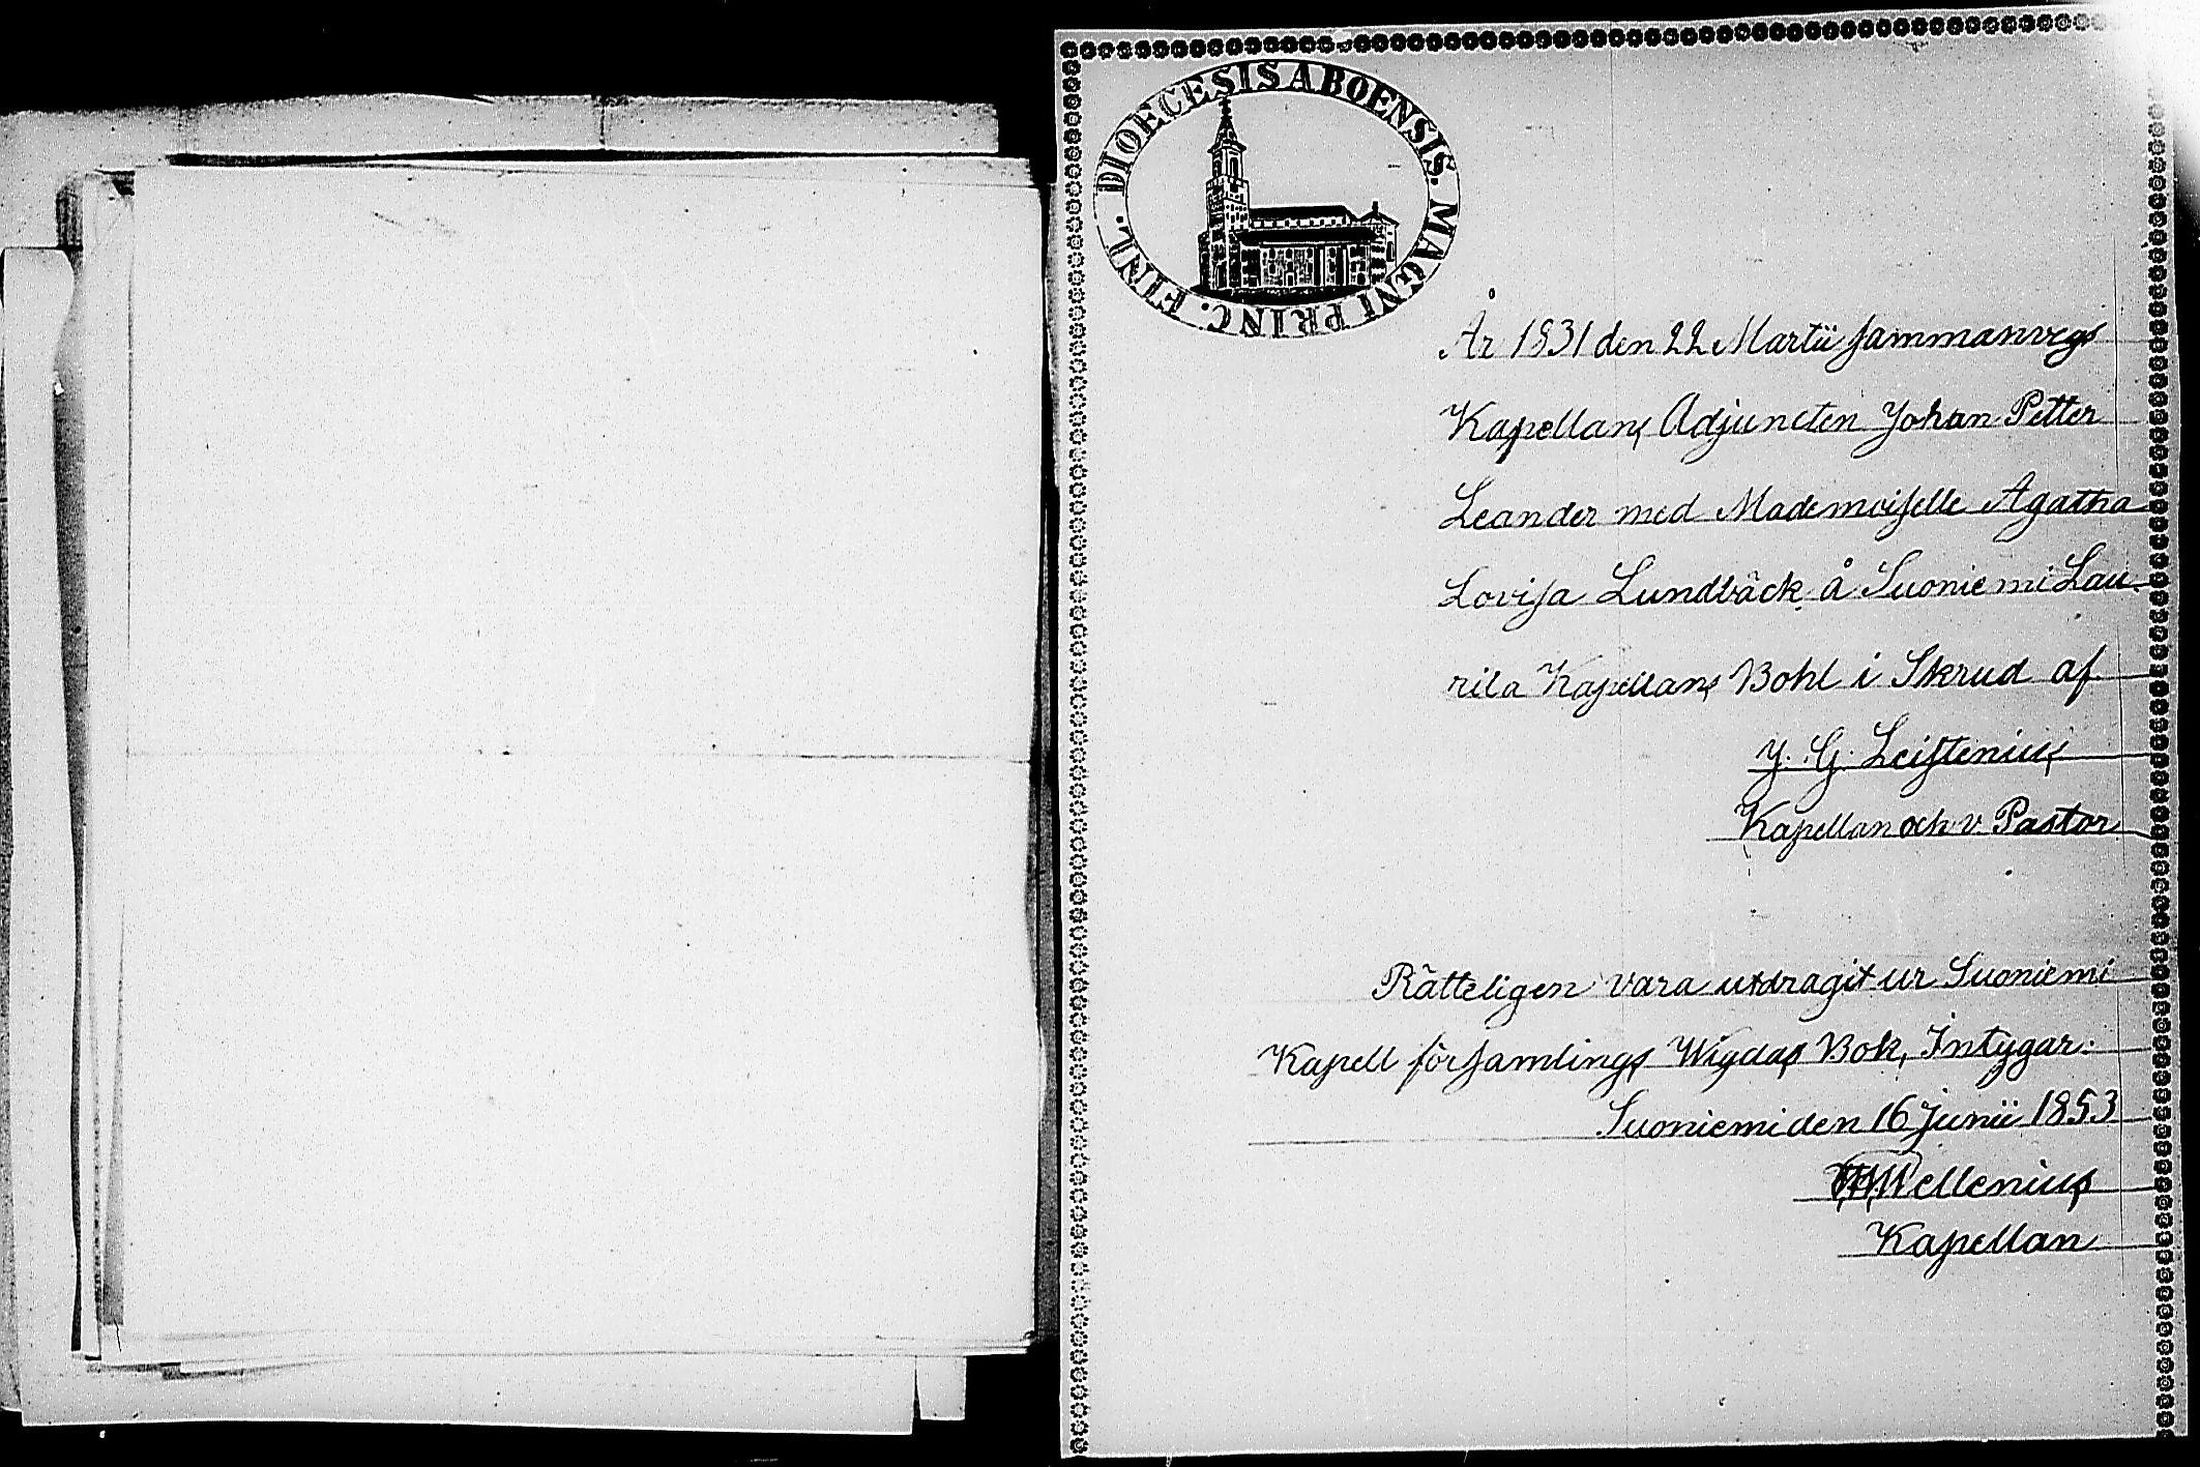 DIOECESIS ABOENSIS. MAGNI PRINC. FINL.
År 1831 den 22 Martii sammanvegs
Kapellans Adjuncten Johan Petter
Leander med Mademoiselle Agatha
Lovisa Lundbäck å Suoniemi Lau-
rila Kapellans Bohl i Skrud af
J. G. Leistenius
Kapellan och v. Pastor
Rätteligen vara utdragit ur Suoniemi
Kapell församlings Wigdas Bok, Intygar.
Suoniemi den 16 Junii 1853
Wellenius
Kapellan